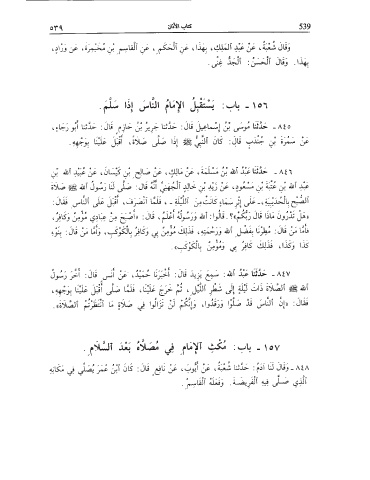 ٥٣٩ كتاب الأذان 539
وَقَالَ شُعْبَةُ، عَنْ عَبْدِ الْمَلِكِ، بِهَذَا، عَنِ الْحَكَمِ، عَنِ الْقَاسِمِ بْنِ مُخَيْمِرَةَ، عَنْ وَرَّادٍ،
بِهَذَا. وَقَالَ الْحَسَنُ: الْجَدُّ غِنًى.
١٥٦ - باب: يَسْتَقْبِلُ الإِمَامُ النَّاسَ إِذَا سَلَّمَ.
٨٤٥ - حَدَّثَنَا مُوسَى بْنُ إِسْمَاعِيلَ قَالَ: حَدَّثَنَا جَرِيرُ بْنُ حَازِمٍ قَالَ: حَدَّثَنَا أَبُو رَجَاءٍ،
عَنْ سَمُرَةَ بْنِ جُنْدَبٍ قَالَ: كَانَ النَّبِيُّ ﷺ إِذَا صَلَّى صَلَاةً، أَقْبَلَ عَلَيْنَا بِوَجْهِهِ.
٨٤٦ - حَدَّثَنَا عَبْدُ اللهِ بْنُ مَسْلَمَةَ، عَنْ مَالِكٍ، عَنْ صَالِحِ بْنِ كَيْسَانَ، عَنْ عُبَيْدِ اللهِ بْنِ
عَبْدِ اللهِ بْنِ عُتْبَةَ بْنِ مَسْعُودٍ، عَنْ زَيْدِ بْنِ خَالِدٍ الْجُهَنِيِّ أَنَّهُ قَالَ: صَلَّى لَنَا رَسُولُ اللهِ ﷺ صَلَاةَ
الصُّبْحِ بِالْحُدَيْبِيَةِ، عَلَى إِثْرِ سَمَاءٍ كَانَتْ مِنَ اللَّيْلَةِ - فَلَمَّا انْصَرَفَ، أَقْبَلَ عَلَى النَّاسِ فَقَالَ:
«هَلْ تَدْرُونَ مَاذَا قَالَ رَبُّكُمْ؟» قَالُوا: اللهُ وَرَسُولُهُ أَعْلَمُ، قَالَ: «أَصْبَحَ مِنْ عِبَادِي مُؤْمِنٌ وَكَافِرٌ،
فَأَمَّا مَنْ قَالَ: مُطِرْنَا بِفَضْلِ اللهِ وَرَحْمَتِهِ، فَذَلِكَ مُؤْمِنٌ بِي وَكَافِرٌ بِالْكَوْكَبِ، وَأَمَّا مَنْ قَالَ: بِنَوْءِ
كَذَا وَكَذَا، فَذَلِكَ كَافِرٌ بِي وَمُؤْمِنٌ بِالْكَوْكَبِ».
٨٤٧ - حَدَّثَنَا عَبْدُ اللهِ: سَمِعَ يَزِيدَ قَالَ: أَخْبَرَنَا حُمَيْدٌ، عَنْ أَنَسٍ قَالَ: أَخَّرَ رَسُولُ
اللهِ ﷺ الصَّلَاةَ ذَاتَ لَيْلَةٍ إِلَى شَطْرِ اللَّيْلِ، ثُمَّ خَرَجَ عَلَيْنَا، فَلَمَّا صَلَّى أَقْبَلَ عَلَيْنَا بِوَجْهِهِ،
فَقَالَ: «إِنَّ النَّاسَ قَدْ صَلَّوْا وَرَقَدُوا، وَإِنَّكُمْ لَنْ تَزَالُوا فِي صَلَاةٍ مَا انْتَظَرْتُمُ الصَّلَاةَ».
١٥٧ - باب: مُكْثِ الإِمَامِ فِي مُصَلَّاهُ بَعْدَ السَّلَامِ.
٨٤٨ - وَقَالَ لَنَا آدَمُ: حَدَّثَنَا شُعْبَةُ، عَنْ أَيُّوبَ، عَنْ نَافِعٍ قَالَ: كَانَ ابْنُ عُمَرَ يُصَلِّي فِي مَكَانِهِ
الَّذِي صَلَّى فِيهِ الْفَرِيضَةَ. وَفَعَلَهُ الْقَاسِمُ.